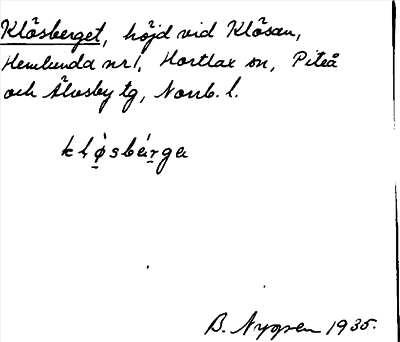 Klösberget, höjd vid Klösan,
Hemlunda nr 1, Hortlax sn, Piteå
och Älvsby tg, Norrb. l.
klø̀sbærga
B. Nygren 1935.